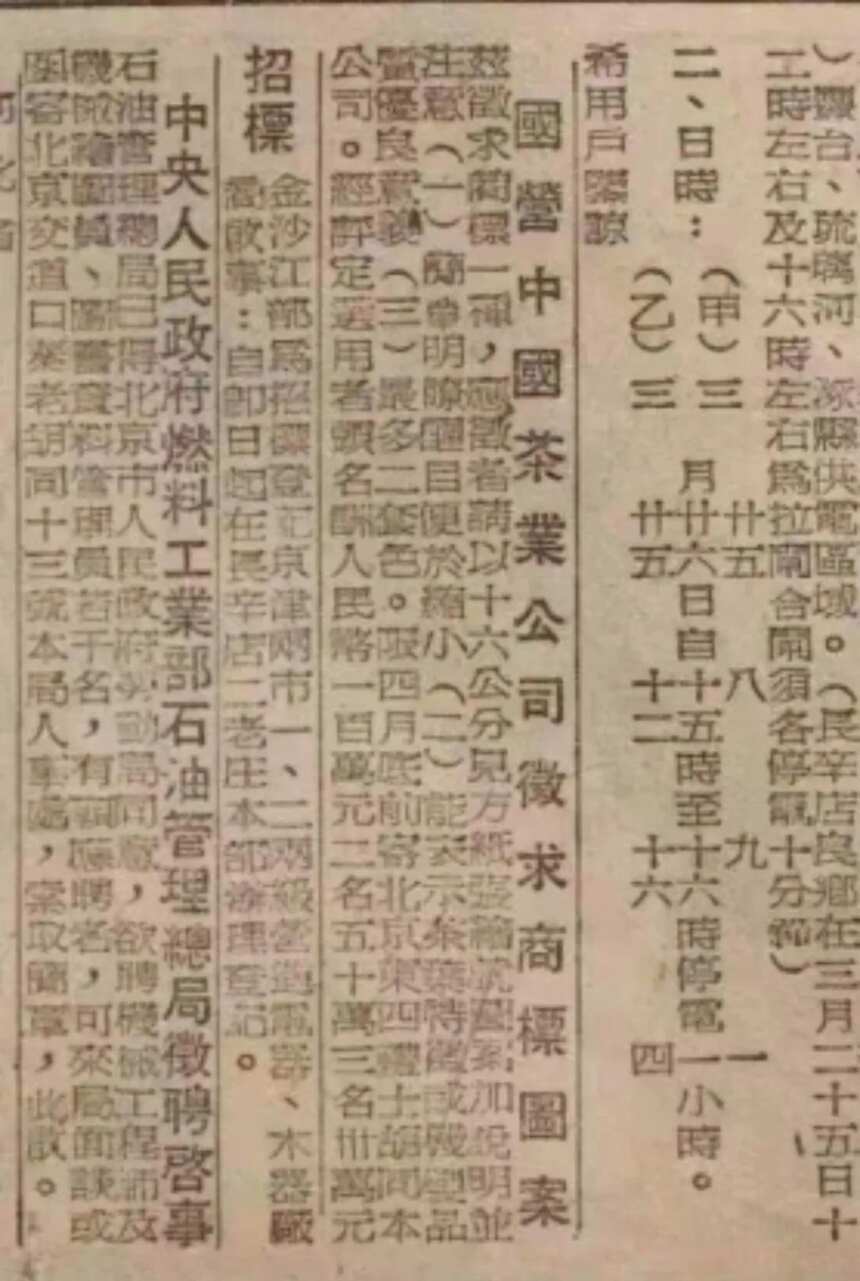 ）豐台、琉璃河、涿縣供電區域。（長辛店良鄉在三月二十五日十
二時左右及十六時左右爲拉閘合閘須各停電十分鐘）
二、日時：（甲）三 廿五 八 九 一
月廿六日自十五時至十六時停電一小時。
（乙）三 廿五 十二 十六 四
希用戶曙諒
國營中國茶業公司徵求商標圖案
茲徵求商標一種，應徵者請以十六公分見方紙張繪就圖案加說明並
注意（一）簡單明瞭醒目便於縮小（二）能表示茶葉特徵或製品
質優良意義（三）最多二套色。限四月底前寄北京東四禮士胡同本
公司。經評定選用者頭名酬人民幣一百萬元二名五十萬三名卅萬元
招標
金沙江部爲招標登記京津兩市一、二兩級營造電器、木器廠
啟事：自即日起在長辛店二老庄本部辦理登記。
中央人民政府燃料工業部石油管理總局徵聘啓事
石油管理總局已得北京市人民政府勞動局同意，欲聘機械工程師及
機械繪圖員、圖書資料管理員若干名，有願應聘者，可來局面談或
函寄北京交道口菊老胡同十三號本局人事處，索取簡章，此啟。